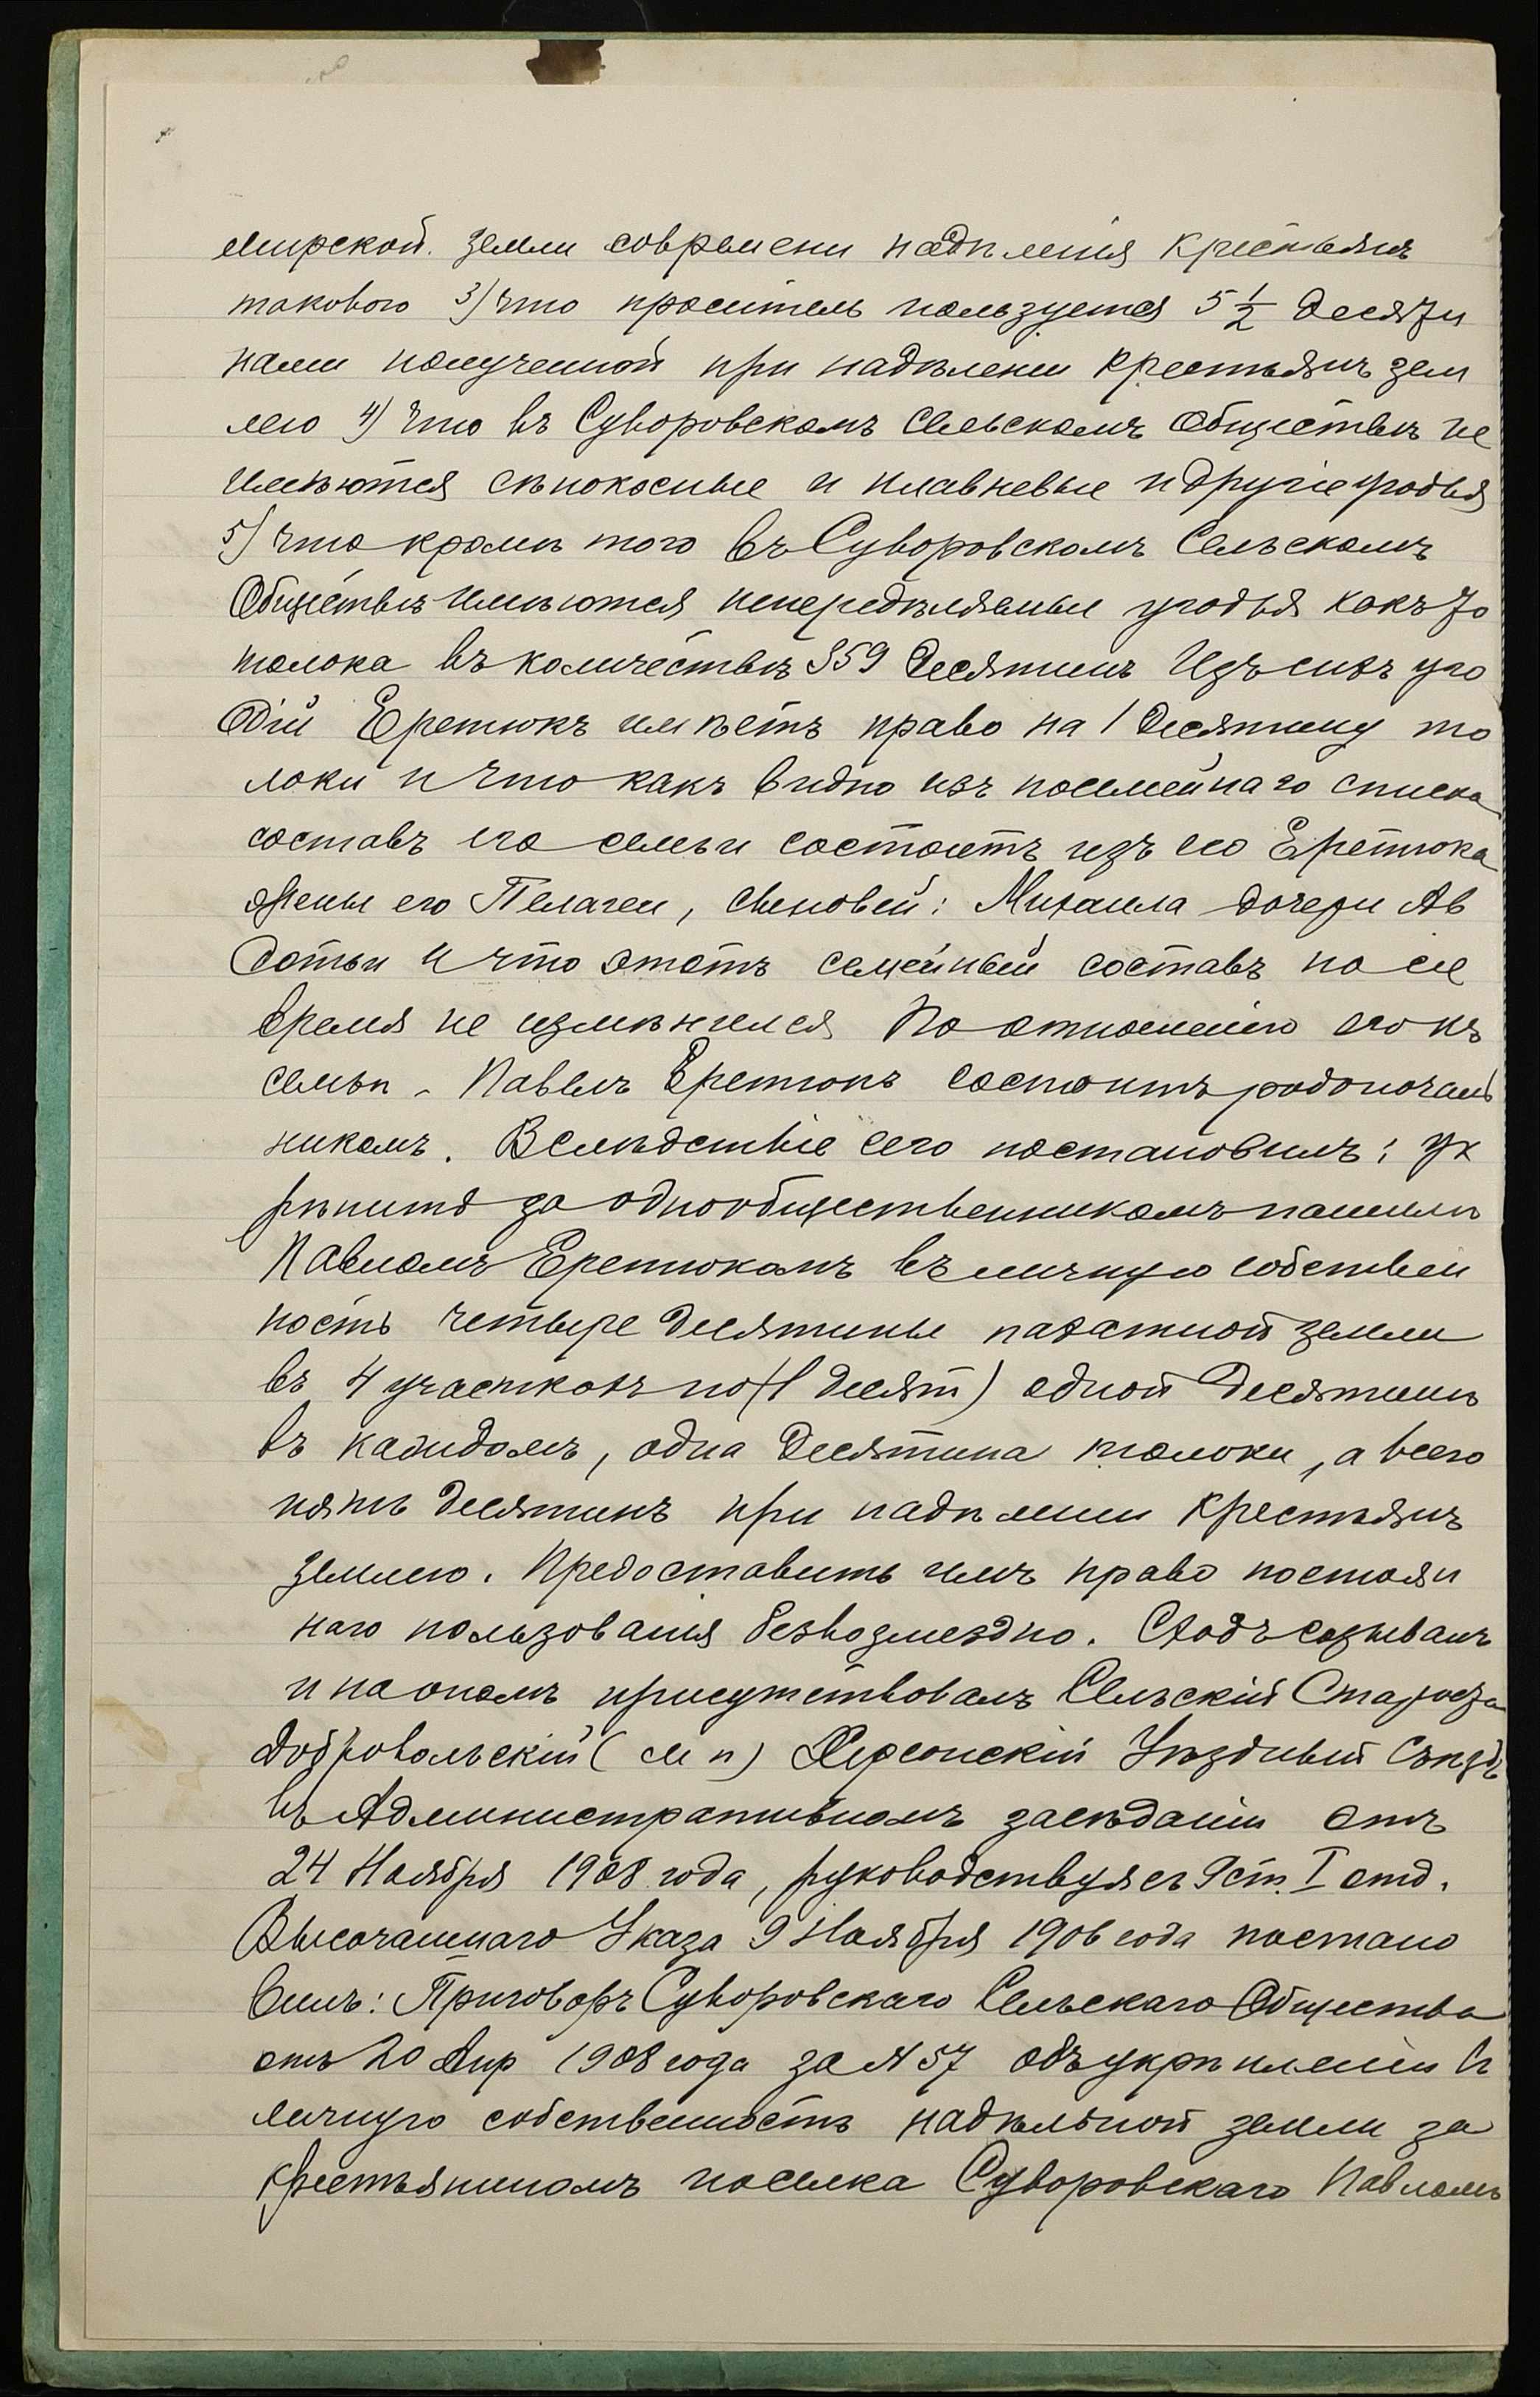 мирской. земли современи надѣленія крестьянъ
такового 3) что проситель пользуется 5 ½ десяти
нами полученной при надѣлении крестьянъ зем
лею 4) что въ Суворовскомъ Сельскомъ Обществѣ не
имѣются сѣнокосные и плавневые и другіе угодья
5) что кромѣ того въ Суворовскомъ Сельскомъ
Обществѣ имѣются непередѣляемые угодья какъ то
толока въ количествѣ 359 десятинъ Изъ сихъ уго
дій Еретюкъ имѣетъ право на 1 десятину то
локи и что какъ видно изъ посемейнаго списка
составъ его семьи состоитъ изъ его Еретюка
жены его Пелагеи, сыновей: Михаила дочери Ав
дотьи и что этотъ семейный составъ по сіе
время не измѣнился По отношенію его къ
семьѣ - Павелъ Еретюкъ состоитъ родоначаль
никомъ. Вслѣдствіе сего постановилъ: ук
рѣпить за однообщественникомъ нашимъ
Павломъ Еретюкомъ въ личную собствен
ность четыре десятины пахатной земли
въ 4 участкахъ по (1 десят) одной десятинѣ
въ каждомъ, одна десятина толоки, а всего
пять десятинъ при надѣлении крестьянъ
землею. Предоставить имъ право постоян
наго пользованія безвозмездно. Сходъ созывалъ
и на ономъ присутствовалъ Сельскій Староста
Добровольскій (м п) Херсонскій Уѣздный Съѣздъ
въ Административномъ засѣданіи отъ
24 Ноября 1908 года, руководствуясь 9 ст. I отд.
Высочайшаго Указа 9 Ноября 1906 года постано
вилъ: Приговоръ Суворовскаго Сельскаго Общества
отъ 20 Апр 1908 года за № 57 объ укрѣпленіи въ
личную собственность надѣльной земли за
крестьяниномъ поселка Суворовскаго Павломъ